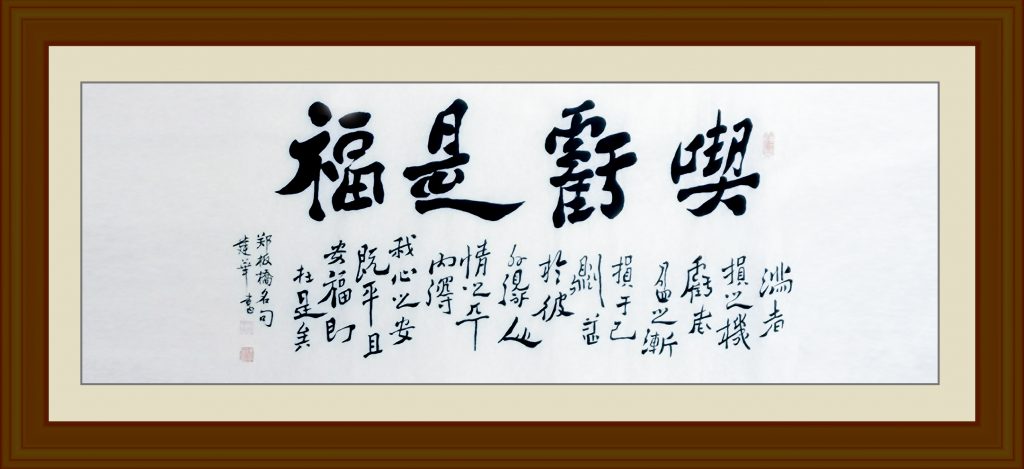 喫虧是福
滿者
損之機
虧者
盈之漸
損于己
則益
於彼
外得人
情之平
內得
我心之安
既平且
安福即
在是矣
郑板橋名句
華書